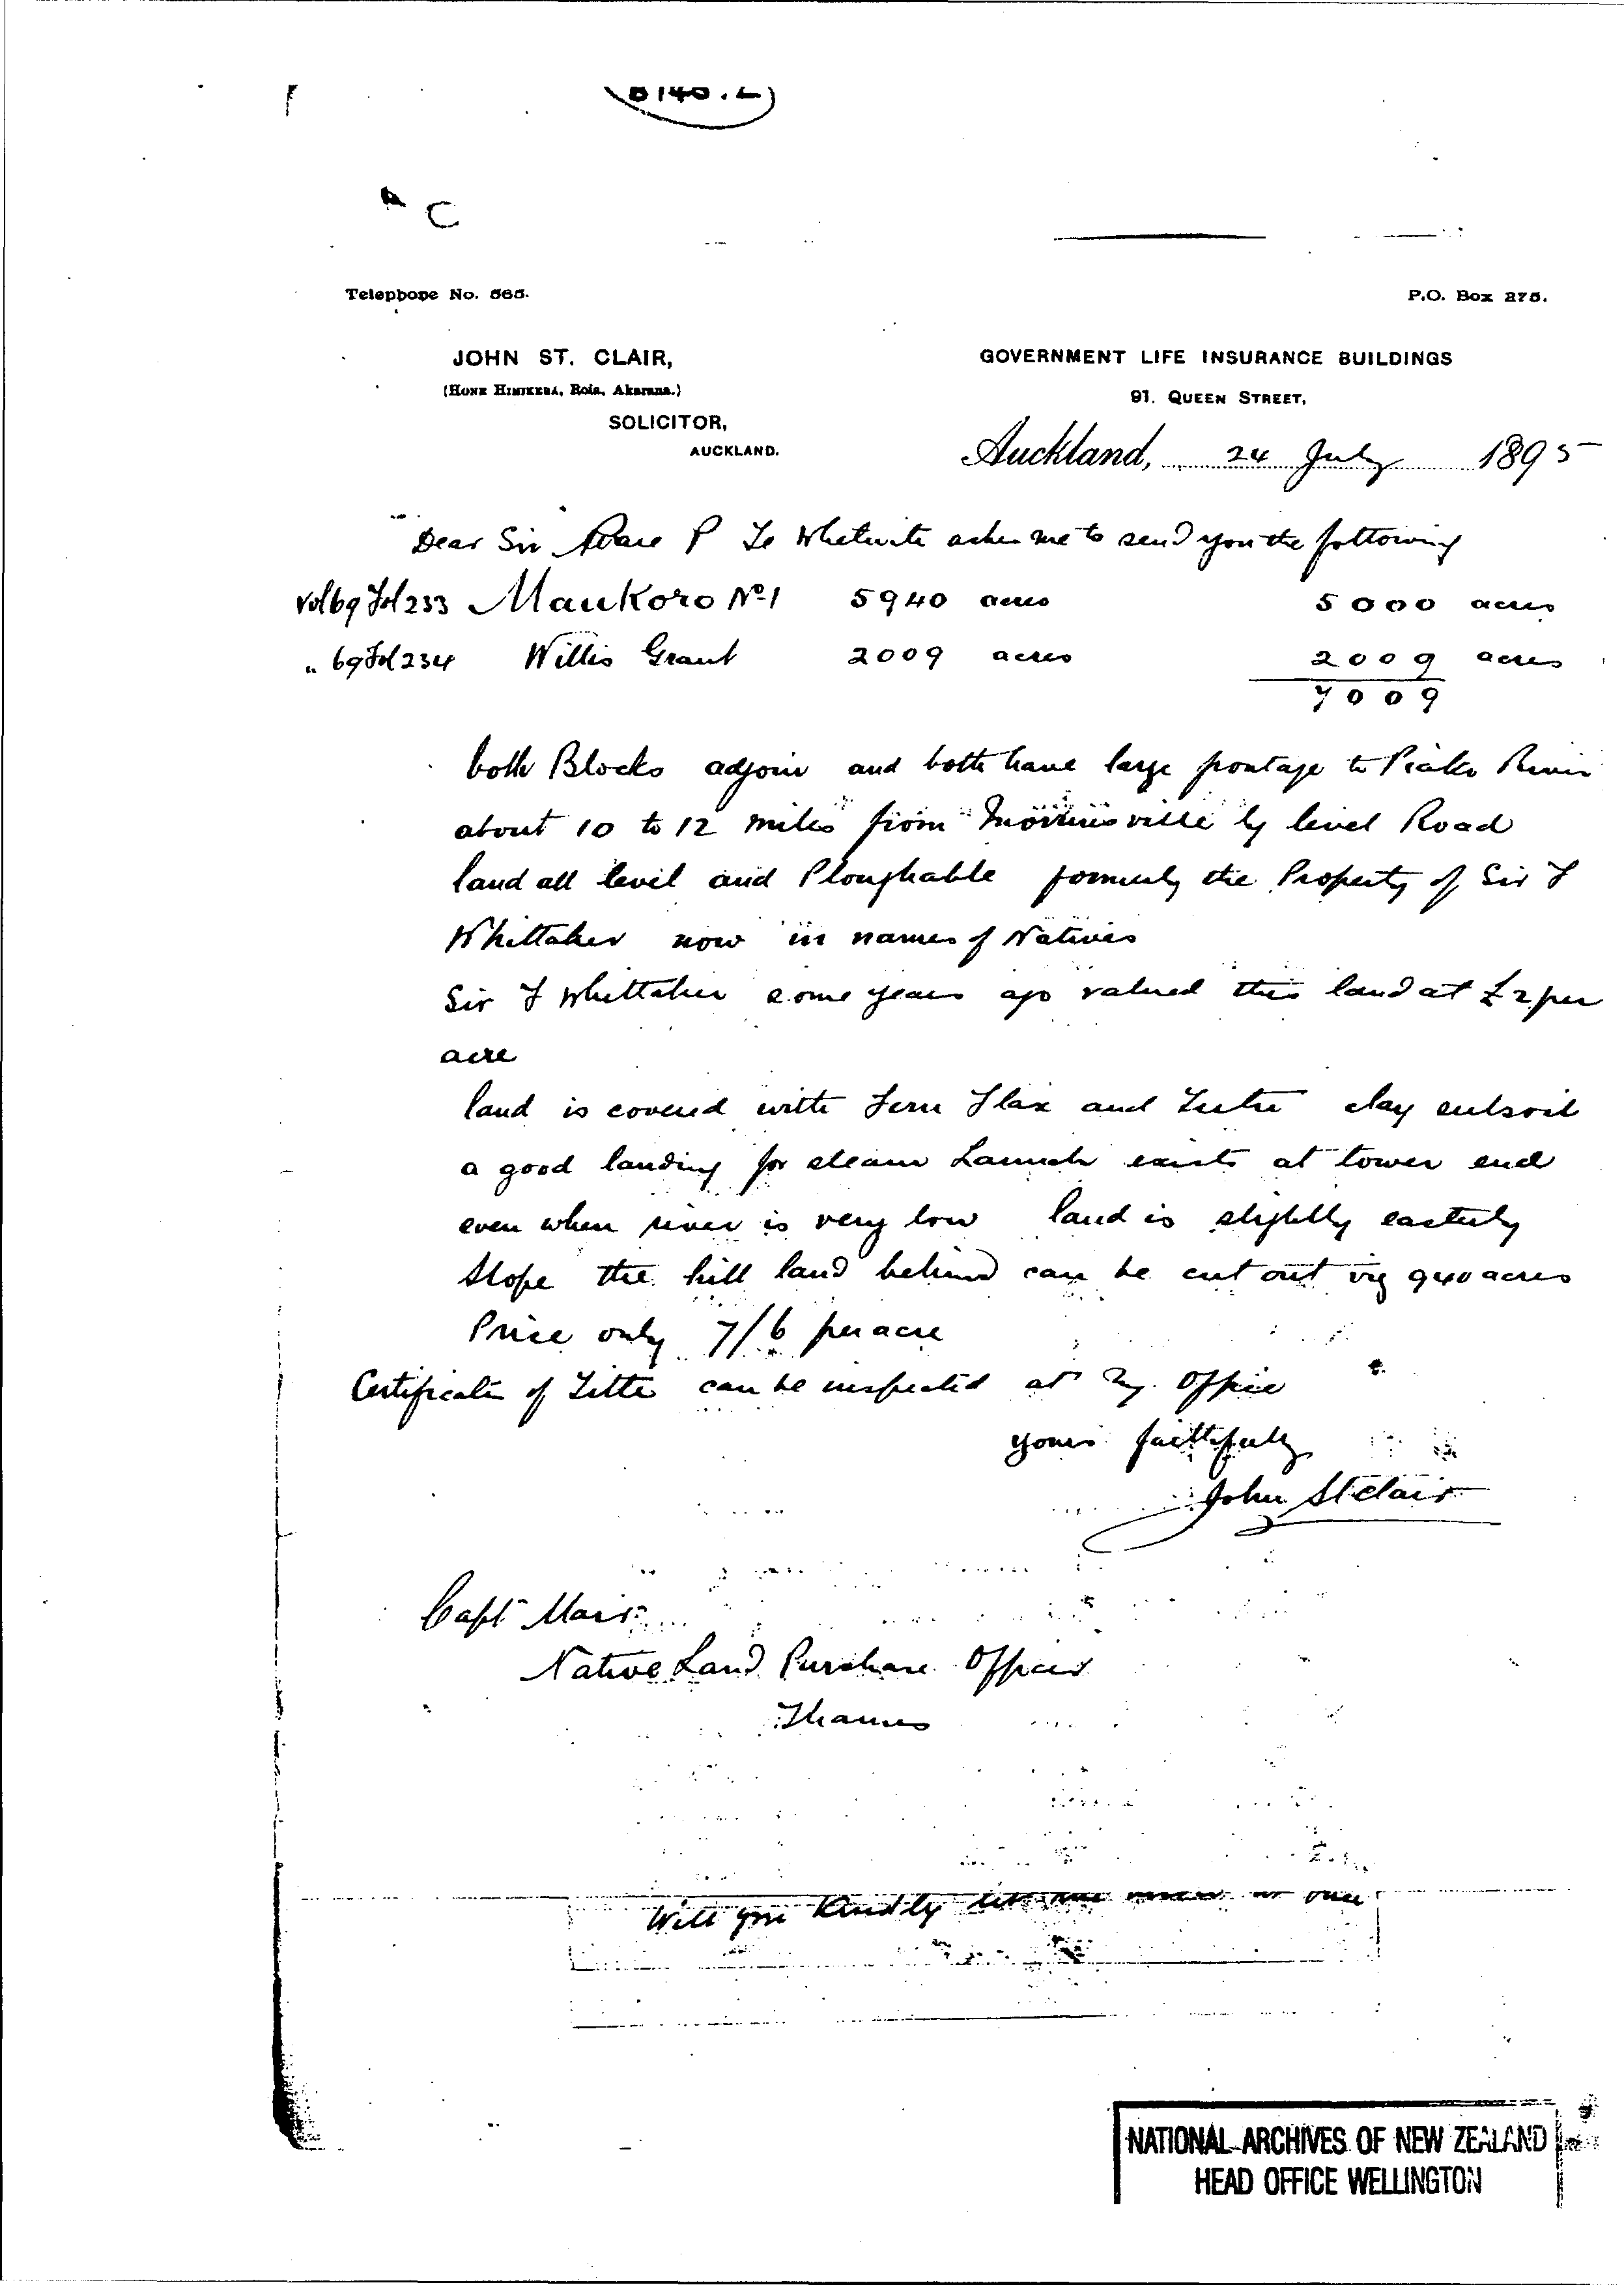 Telephone No. 565.
P.O. Box 275.
JOHN ST. CLAIR,
GOVERNMENT LIFE INSURANCE BUILDINGS
(HONE HINIKERA, Roia, Akarana.)
91. QUEEN STREET,
SOLICITOR,
AUCKLAND.
Auckland, 24 July 1895
Dear Sir P Te Whetuiti asks me to send you the following
Vol 69 Fol 233 Maukoro No 1 5940 acres 5000 acres
" 69 Fol 234 Willis Grant 2009 acres 2009 acres
7009
both Blocks adjoin and both have large frontage to Piako River
about 10 to 12 miles from Morrinsville by level Road
land all level and Ploughable formerly the Property of Sir F
Whittaker now in names of Natives
Sir F Whittaker some years ago valued this land at £2 per
acre
land is covered with Fern Flax and Tutu clay subsoil
a good landing for steam Launch exists at lower end
even when river is very low land is slightly easterly
slope the hill land behind can be cut out viz 940 acres
Price only 7/6 per acre
Certificates of Title can be inspected at my Office
yours faithfully
John St Clair
Capt Mair
Native Land Purchase Officer
Thames
Will you kindly let me
NATIONAL ARCHIVES OF NEW ZEALAND
HEAD OFFICE WELLINGTON